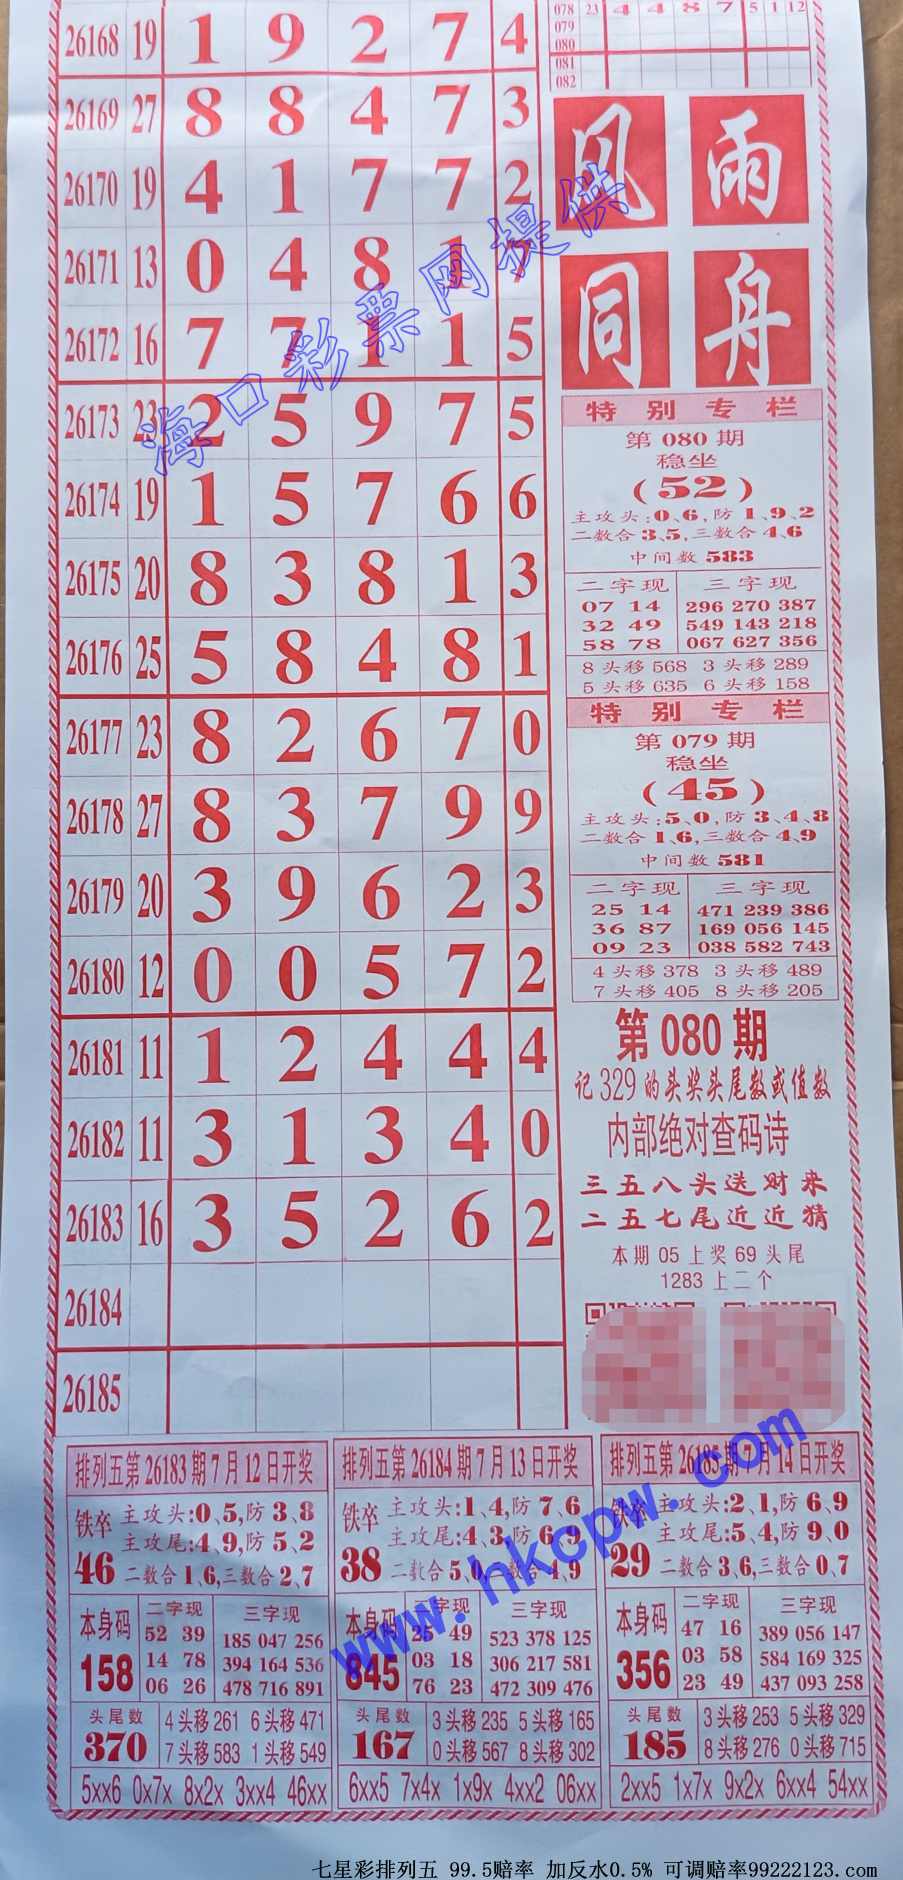 26168 19 1 9 2 7 4
26169 27 8 8 4 7 3
26170 19 4 1 7 7 2
26171 13 0 4 8 1
26172 16 7 7 1 1 5
26173 23 2 5 9 7 5
26174 19 1 5 7 6 6
26175 20 8 3 8 1 3
26176 25 5 8 4 8 1
26177 23 8 2 6 7 0
26178 27 8 3 7 9 9
26179 20 3 9 6 2 3
26180 12 0 0 5 7 2
26181 11 1 2 4 4 4
26182 11 3 1 3 4 0
26183 16 3 5 2 6 2
26184
26185
078 23 4 4 8 7 5 1 12
079
080
081
082
风雨
同舟
特别专栏
第080期
稳坐
(52)
主攻头:0、6,防1、9、2
二数合3、5,三数合4、6
中间数583
二字现 三字现
07 14 296 270 387
32 49 549 143 218
58 78 067 627 356
8头移568 3头移289
5头移635 6头移158
特别专栏
第079期
稳坐
(45)
主攻头:5、0,防3、4、8
二数合1、6,三数合4、9
中间数581
二字现 三字现
25 14 471 239 386
36 87 169 056 145
09 23 038 582 743
4头移378 3头移489
7头移405 8头移205
第080期
记329的头奖头尾数或值数
内部绝对查码诗
三五八头送财来
二五七尾近近猜
本期05上奖69头尾
1283上二个
排列五第26183期7月12日开奖
铁卒 主攻头:0、5,防3、8
46 主攻尾:4、9,防5、2
二数合1、6,三数合2、7
本身码 二字现 三字现
158 52 39 185 047 256
14 78 394 164 536
06 26 478 716 891
头尾数 4头移261 6头移471
370 7头移583 1头移549
5xx6 0x7x 8x2x 3xx4 46xx
排列五第26184期7月13日开奖
铁卒 主攻头:1、4,防7、6
38 主攻尾:4、3,防6、9
二数合5、0,三数合4、9
本身码 二字现 三字现
845 25 49 523 378 125
03 18 306 217 581
76 23 472 309 476
头尾数 3头移235 5头移165
167 0头移567 8头移302
6xx5 7x4x 1x9x 4xx2 06xx
排列五第26185期7月14日开奖
铁卒 主攻头:2、1,防6、9
29 主攻尾:5、4,防9、0
二数合3、6,三数合0、7
本身码 二字现 三字现
356 47 16 389 056 147
03 58 584 169 325
23 49 437 093 258
头尾数 3头移253 5头移329
185 8头移276 0头移715
2xx5 1x7x 9x2x 6xx4 54xx
海口彩票网提供
www.hkcpw.com
七星彩排列五 99.5赔率 加反水0.5% 可调赔率99222123.com